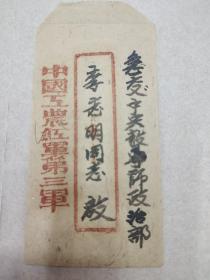 交中央教導师政治部
李明同志 啟
中國工農紅軍第三軍